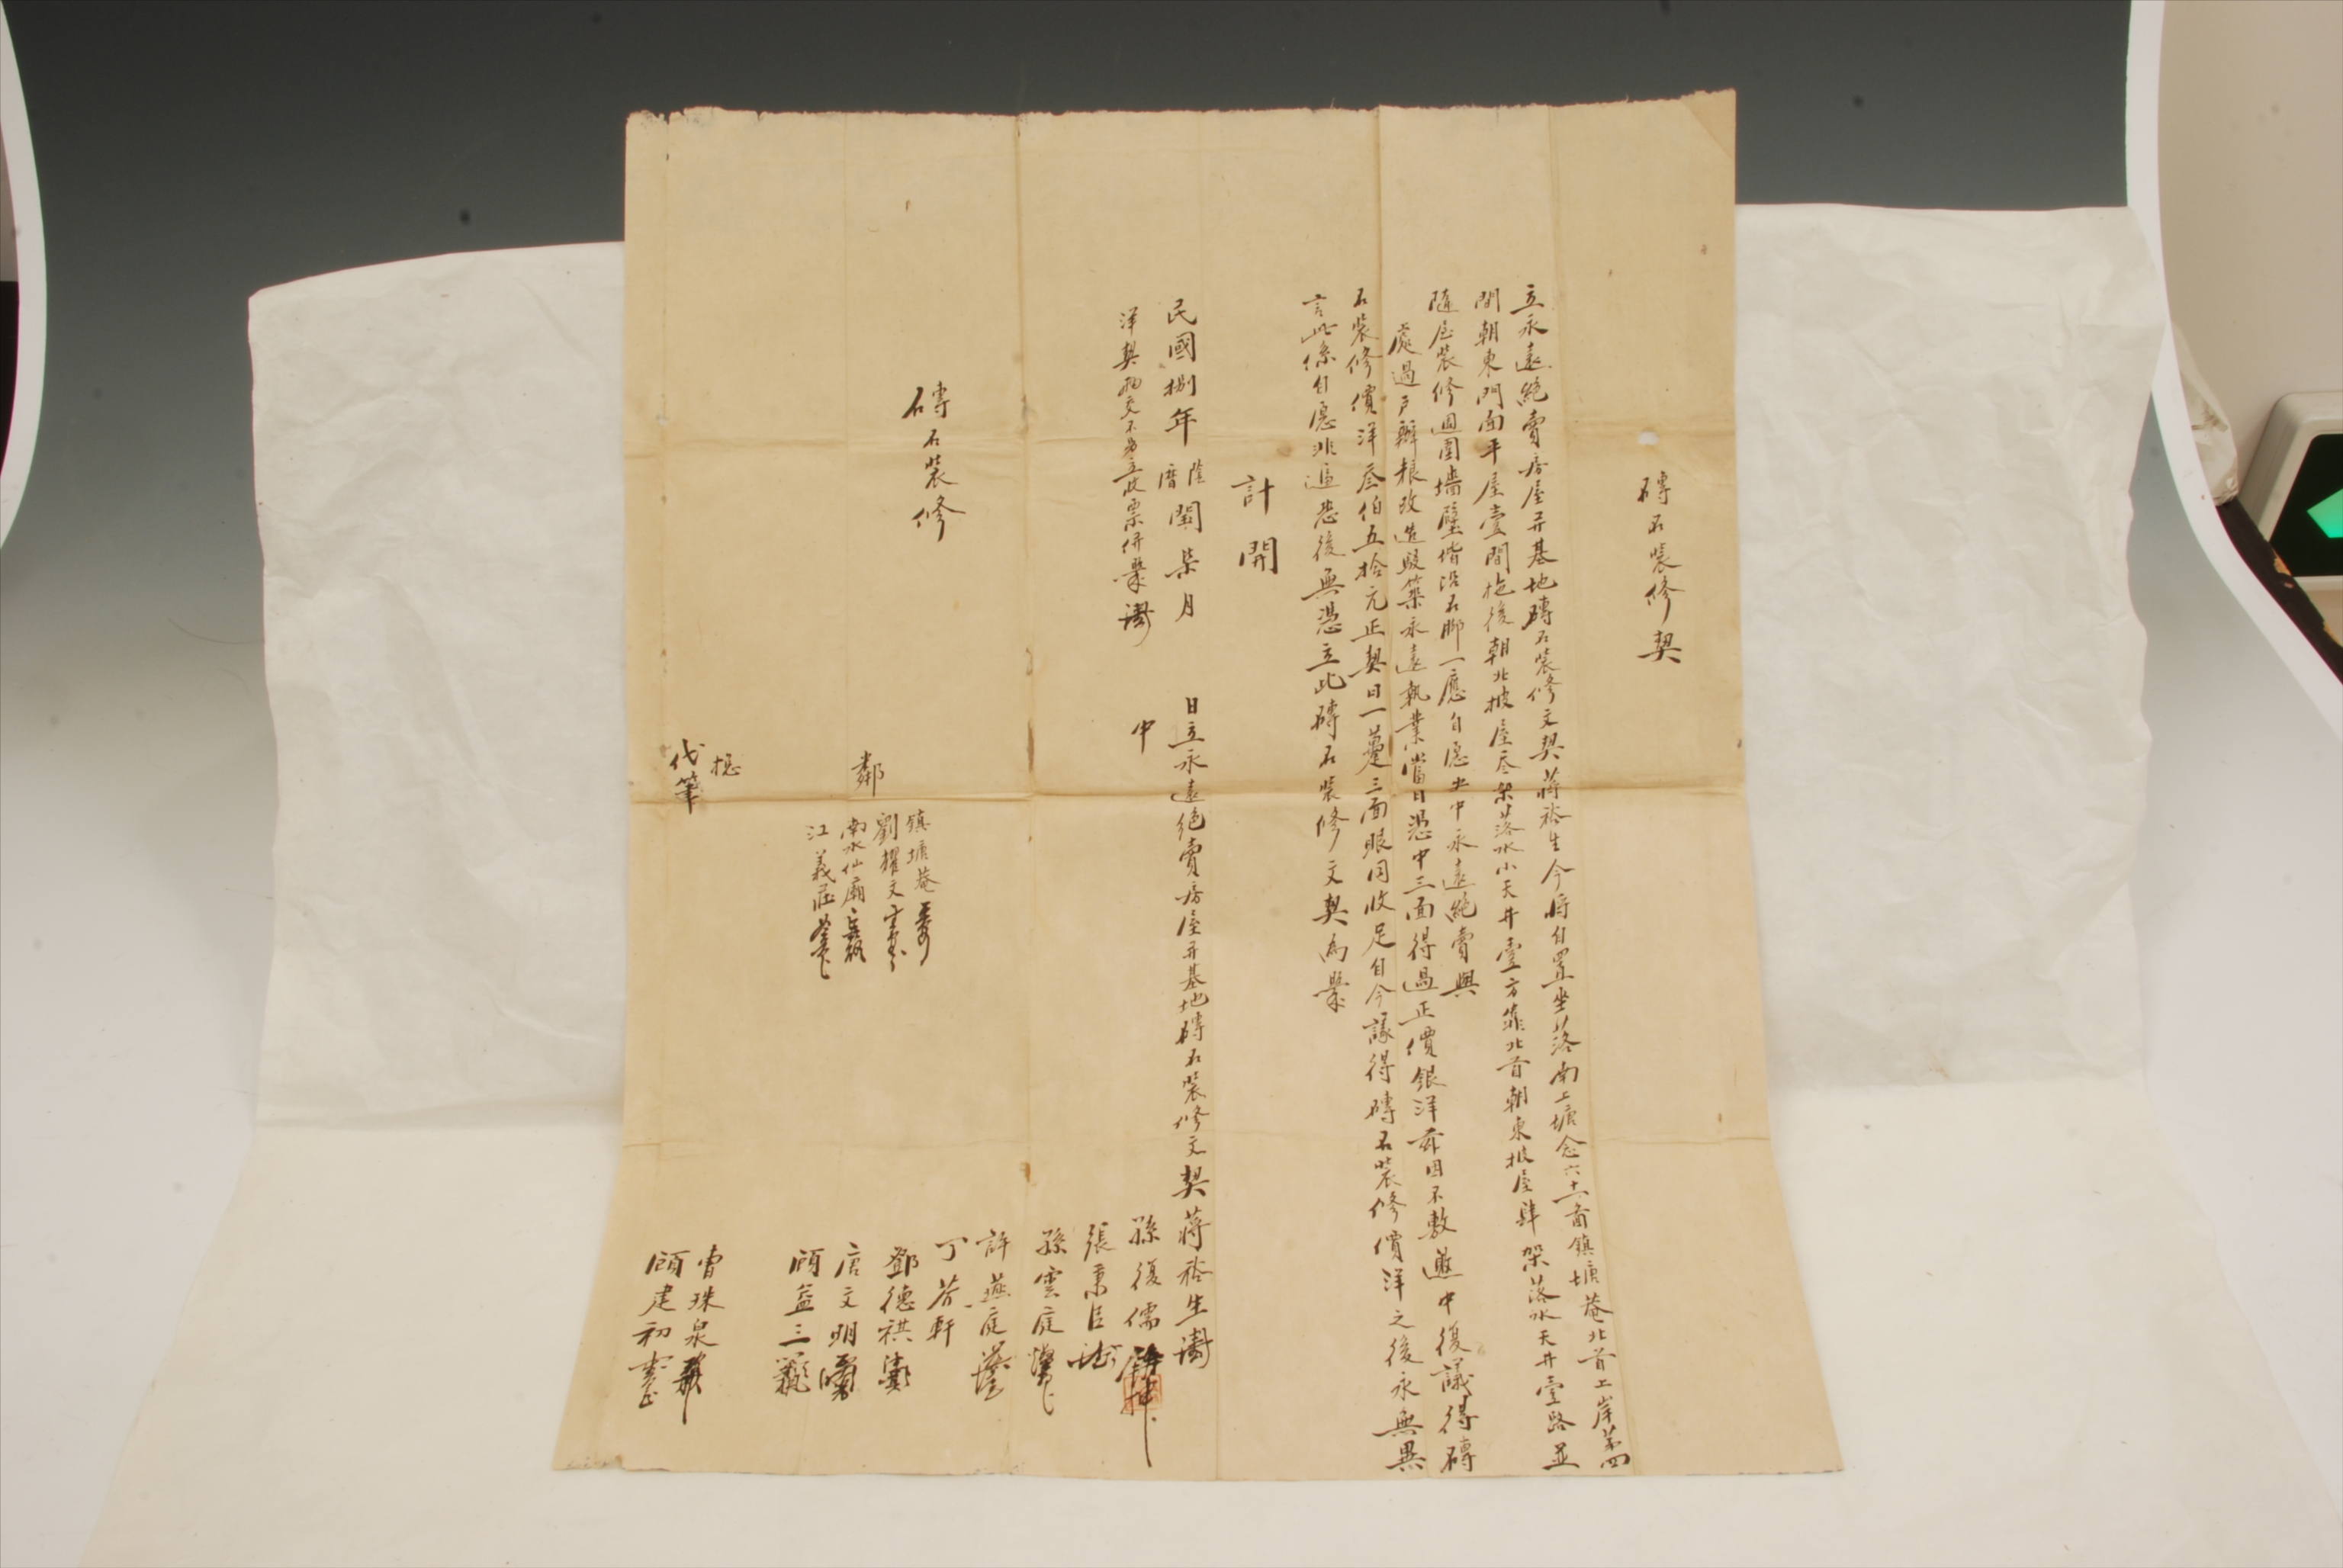 磚石裝修契
立永遠絕賣房屋并基地磚石裝修文契蔣裕生今將自置坐落南上塘念六十一啚鎮塘菴北首上岸第四
間朝東門面平屋壹間拖後朝北披屋叁架落水小天井壹方靠北首朝東披屋肆架落水天井壹路並
隨屋裝修週圍墻壁堦沿石脚一應自愿央中永遠絕賣與
處過戶辦粮改造聽築永遠執業當日憑中三面得過正價銀洋茲因不敷邀中復議得磚
石裝修價洋叁伯五拾元正契日一躉三面眼同收足自今議得磚石裝修價洋之後永無異
言此係自愿非逼恐後無憑立此磚石裝修文契為據
計開
民國捌年陰曆閏柒月 日立永遠絕賣房屋并基地磚石裝修文契蔣裕生
洋契兩交不另立收票併照
中
孫復儒
張秉臣
孫雲庭
許燕庭
丁芥軒
鄧德祺
唐文明
顧益三
磚石裝修
鄰
鎮塘菴
劉耀文
南水仙廟
江義莊
摠 曹珠泉
代筆 顧建初